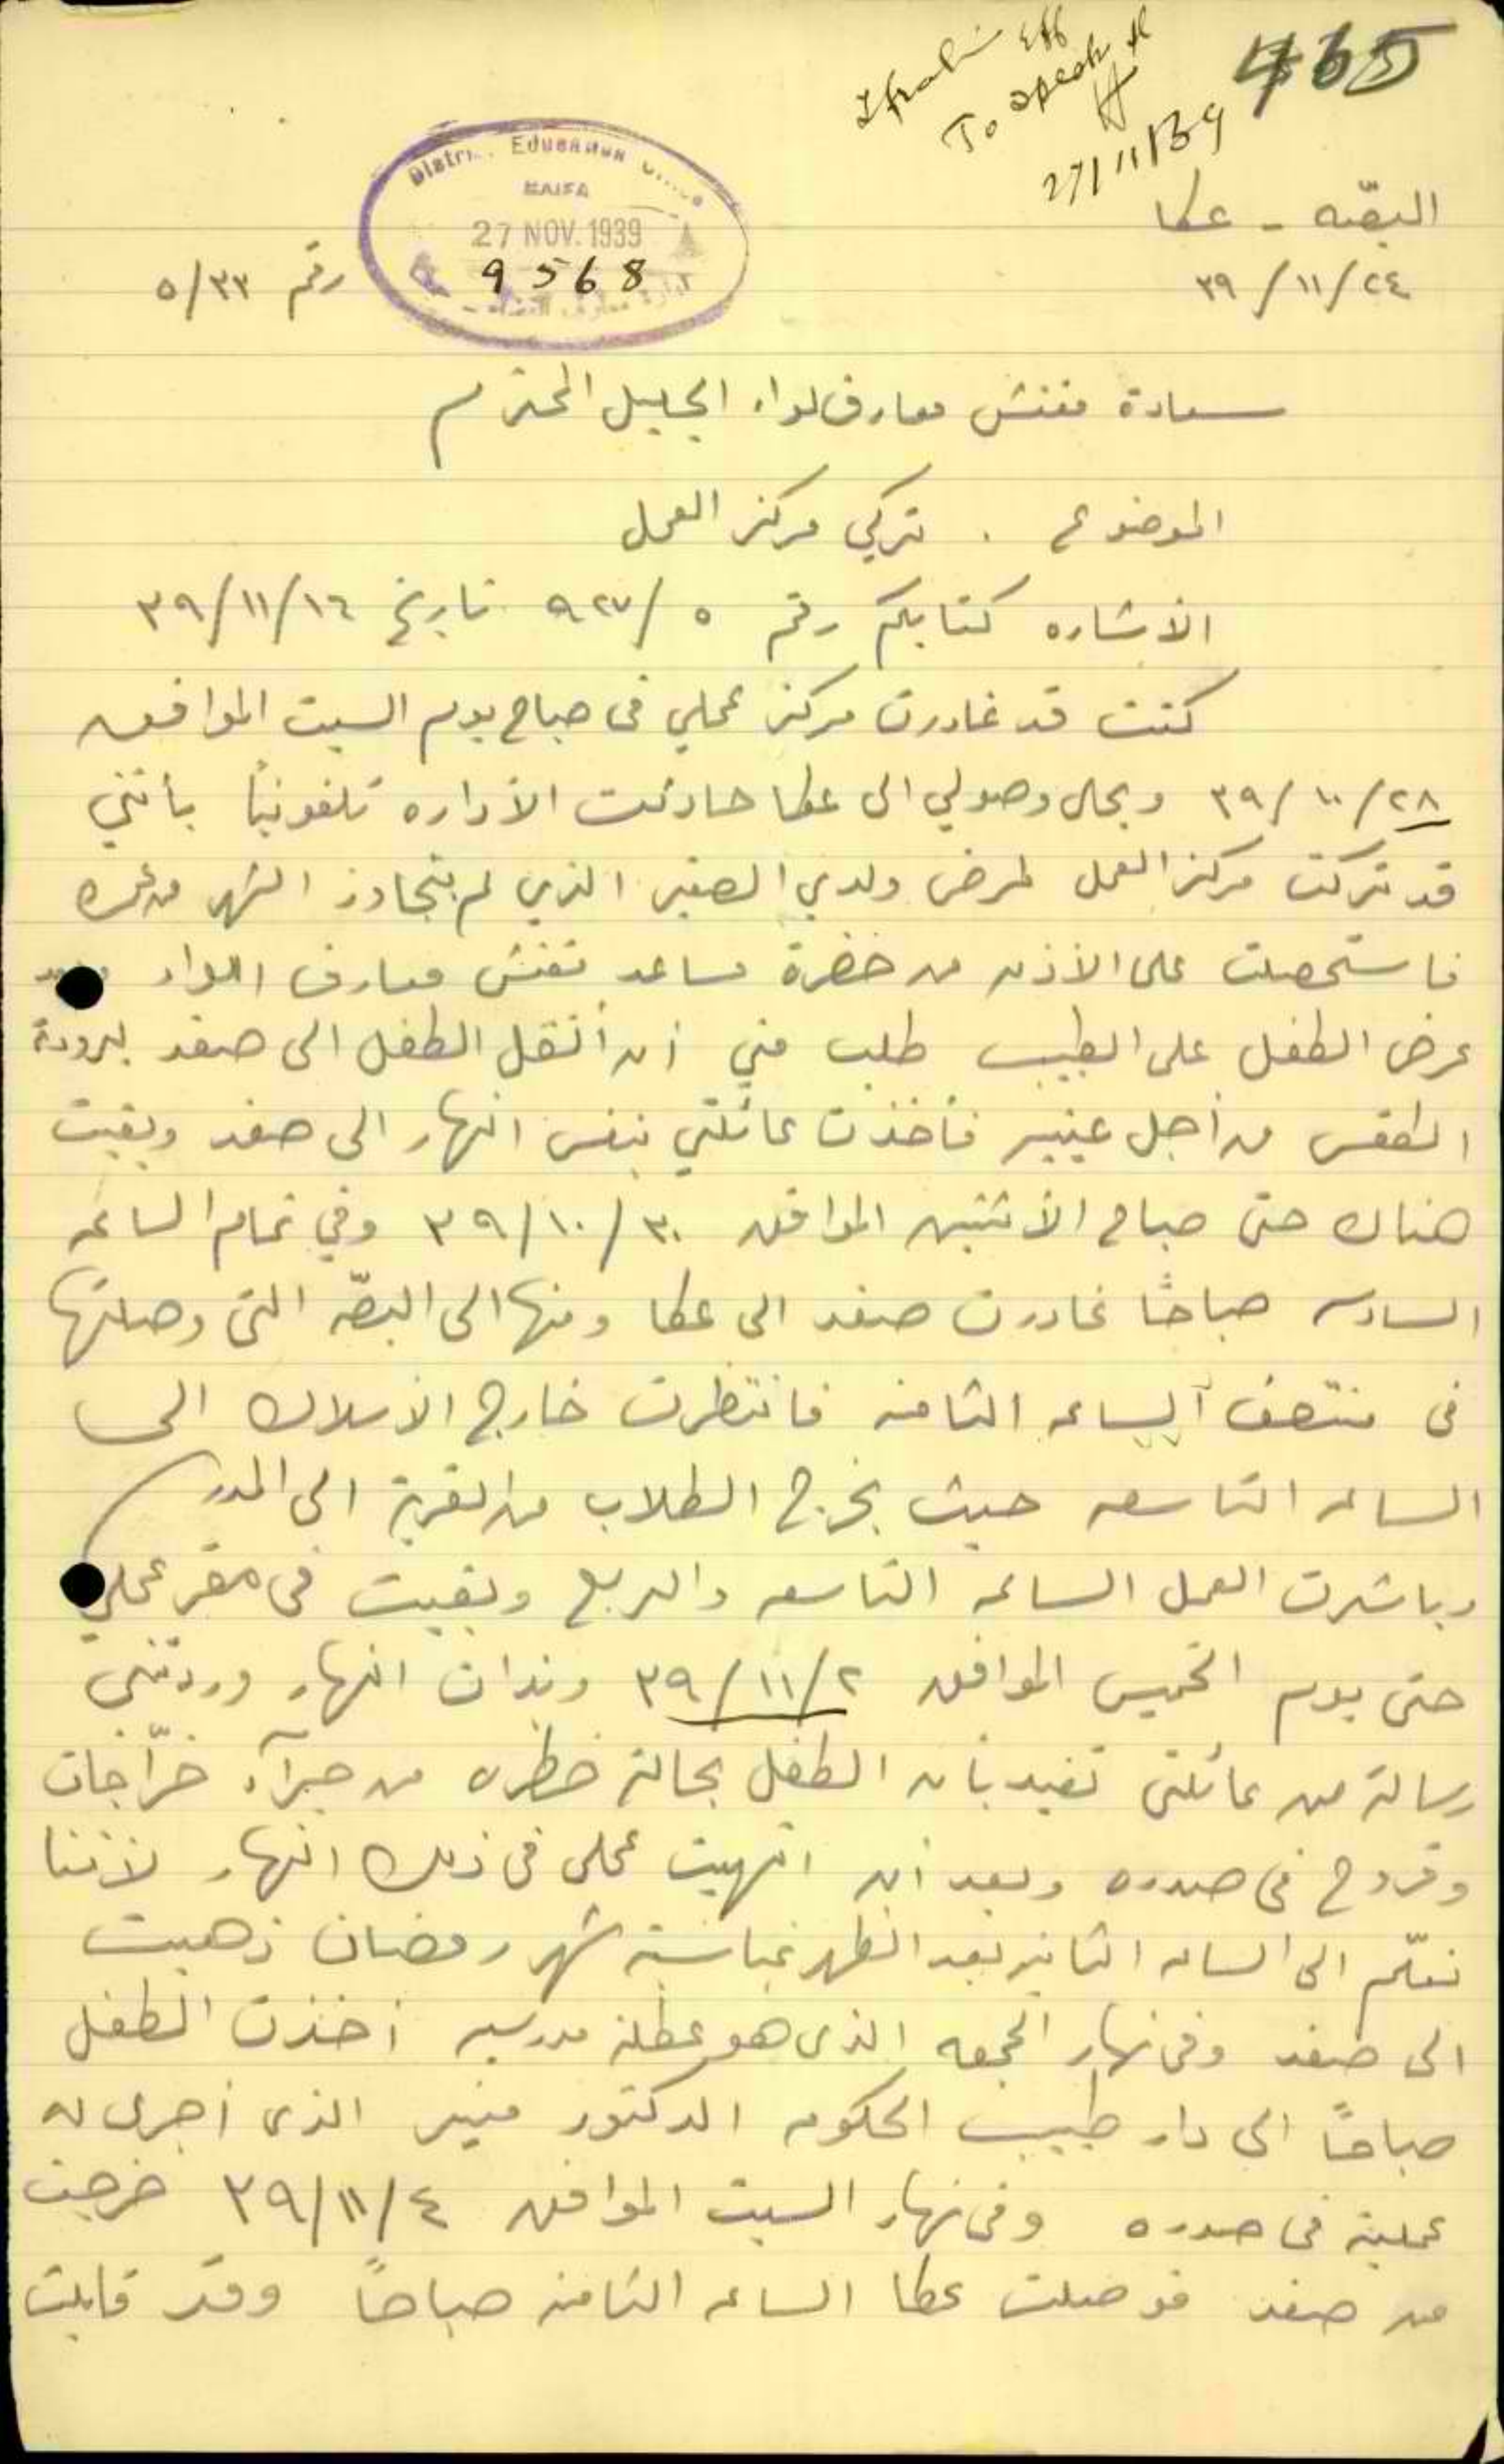 465
To speak
27/11/39
District Education Office
HAIFA
27 NOV. 1939
9568
البصّه - عكا
٢٤/١١/٣٩
رقم ٥/٣٣
سعادة مفتش معارف لواء الجليل المحترم
الموضوع . تركي مركز العمل
الأشاره كتابكم رقم ٥/٩٢٧ تاريخ ١٦/١١/٣٩
كنت قد غادرت مركز عملي في صباح يوم السبت الموافق
٢٨/١٠/٣٩ وبحال وصولي الى عكا حادثت الأداره تلفونياً بأنني
قد تركت مركز العمل لمرض ولدي الصغير الذي لم يتجاوز الشهر من عمره
فاستحصلت على الأذن من حضرة مساعد مفتش معارف اللواء
عرض الطفل على الطبيب طلب مني أن أنقل الطفل الى صفد لبرودة
الطقس من أجل فأخذت عائلتي بنفس النهار الى صفد وبقيت
هناك حتى صباح الأثنين الموافق ٣٠/١٠/٣٩ وفي تمام الساعه
السادسه صباحاً غادرت صفد الى عكا ومنها الى البصّه التي وصلتها
في منتصف الساعه الثامنه فانتظرت خارج الأسلاك الى
الساعه التاسعه حيث يخرج الطلاب من القرية الى المدرسه
وباشرت العمل الساعه التاسعه والربع وبقيت في مقر عملي
حتى يوم الخميس الموافق ٢/١١/٣٩ وبذات النهار وردتني
رسالة من عائلتي تفيد بأن الطفل بحالة خطره من جرآء خرّاجات
وقروح في صدره وبعد أن انهيت عملي في ذلك النهار لأننا
نعلّم الى الساعه الثانيه بعد الظهر بمناسبة شهر رمضان ذهبت
الى صفد وفي نهار الجمعه الذي هو عطلة مدرسيه أخذت الطفل
صباحاً الى دار طبيب الحكومه الدكتور منير الذي أجرى له
عملية في صدره وفي نهار السبت الموافق ٤/١١/٣٩ خرجت
من صفد فوصلت عكا الساعه الثامنه صباحاً وقد قابلت